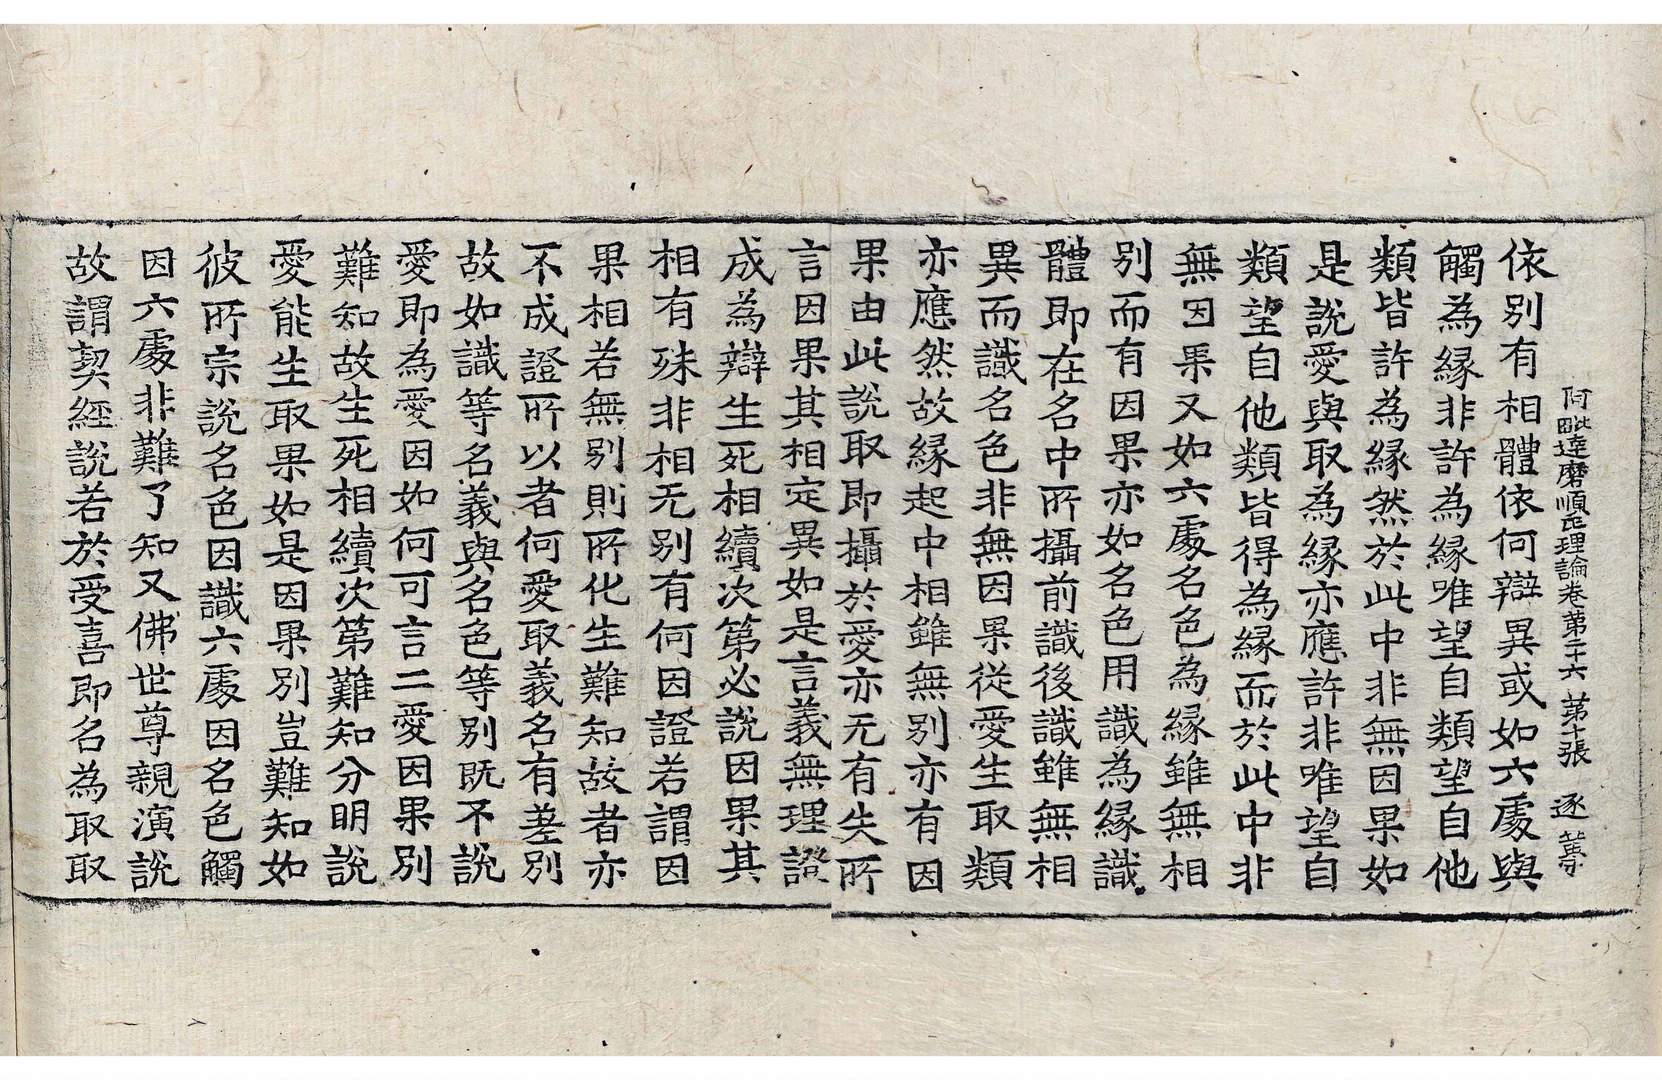 阿毗達磨順正理論卷第二十六 第十張 逐
依別有相體依何辯異或如六處與
觸為緣非許為緣唯望自類望自他
類皆許為緣然於此中非無因果如
是說愛與取為緣亦應許非唯望自
類望自他類皆得為緣而於此中非
無因果又如六處名色為緣雖無相
別而有因果亦如名色用識為緣識
體即在名中所攝前識後識雖無相
異而識名色非無因果從愛生取類
亦應然故緣起中相雖無別亦有因
果由此說取即攝於愛亦无有失所
言因果其相定異如是言義無理證
成為辯生死相續次第必說因果其
相有殊非相无別有何因證若謂因
果相若無別則所化生難知故者亦
不成證所以者何愛取義名有差別
故如識等名義與名色等別既不說
愛即為愛因如何可言二愛因果別
難知故生死相續次第難知分明說
愛能生取果如是因果別豈難知如
彼所宗說名色因識六處因名色觸
因六處非難了知又佛世尊親演說
故謂契經說若於受喜即名為取取